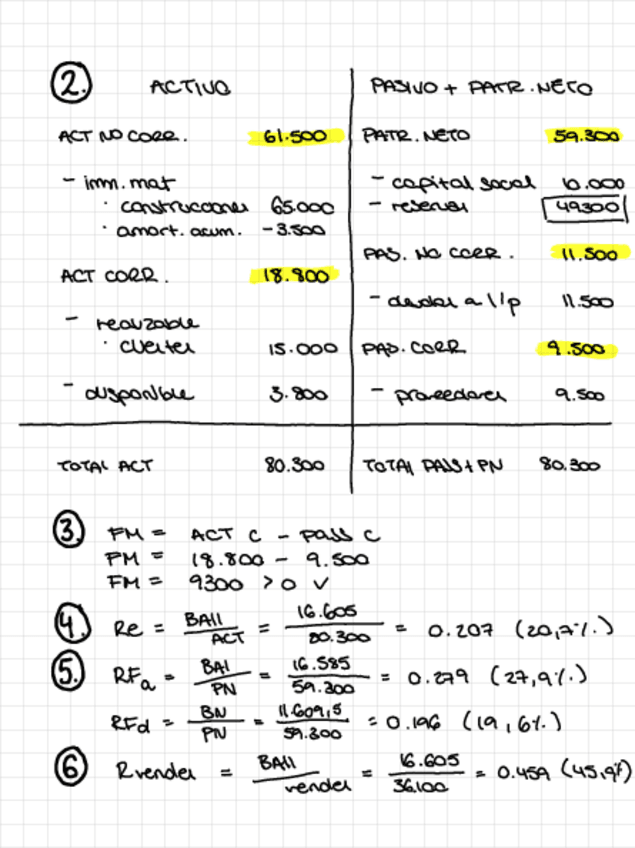 2. ACTIVO PASIVO + PATR. NETO
ACT NO CORR. 61.500 PATR. NETO 59.300
- inm. mat - capital social 10.000
· construcciones 65.000 - reservas 49300
· amort. acum. -3.500
PAS. NO CORR. 11.500
ACT CORR. 18.800
- deudas a l/p 11.500
- realizable
· clientes 15.000 PAS. CORR 9.500
- disponible 3.800 - proveedores 9.500
TOTAL ACT 80.300 TOTAL PASS + PN 80.300
3. FM = ACT C - PASS C
FM = 18.800 - 9.500
FM = 9300 > 0 ✓
4. Re = BAII / ACT = 16.605 / 80.300 = 0.207 (20,7%.)
5. RFa = BAI / PN = 16.585 / 59.300 = 0.279 (27,9%.)
RFd = BN / PN = 11.609,5 / 59.300 = 0.196 (19,6%.)
6 Rvendes = BAII / vendes = 16.605 / 36.100 = 0.459 (45,9%)